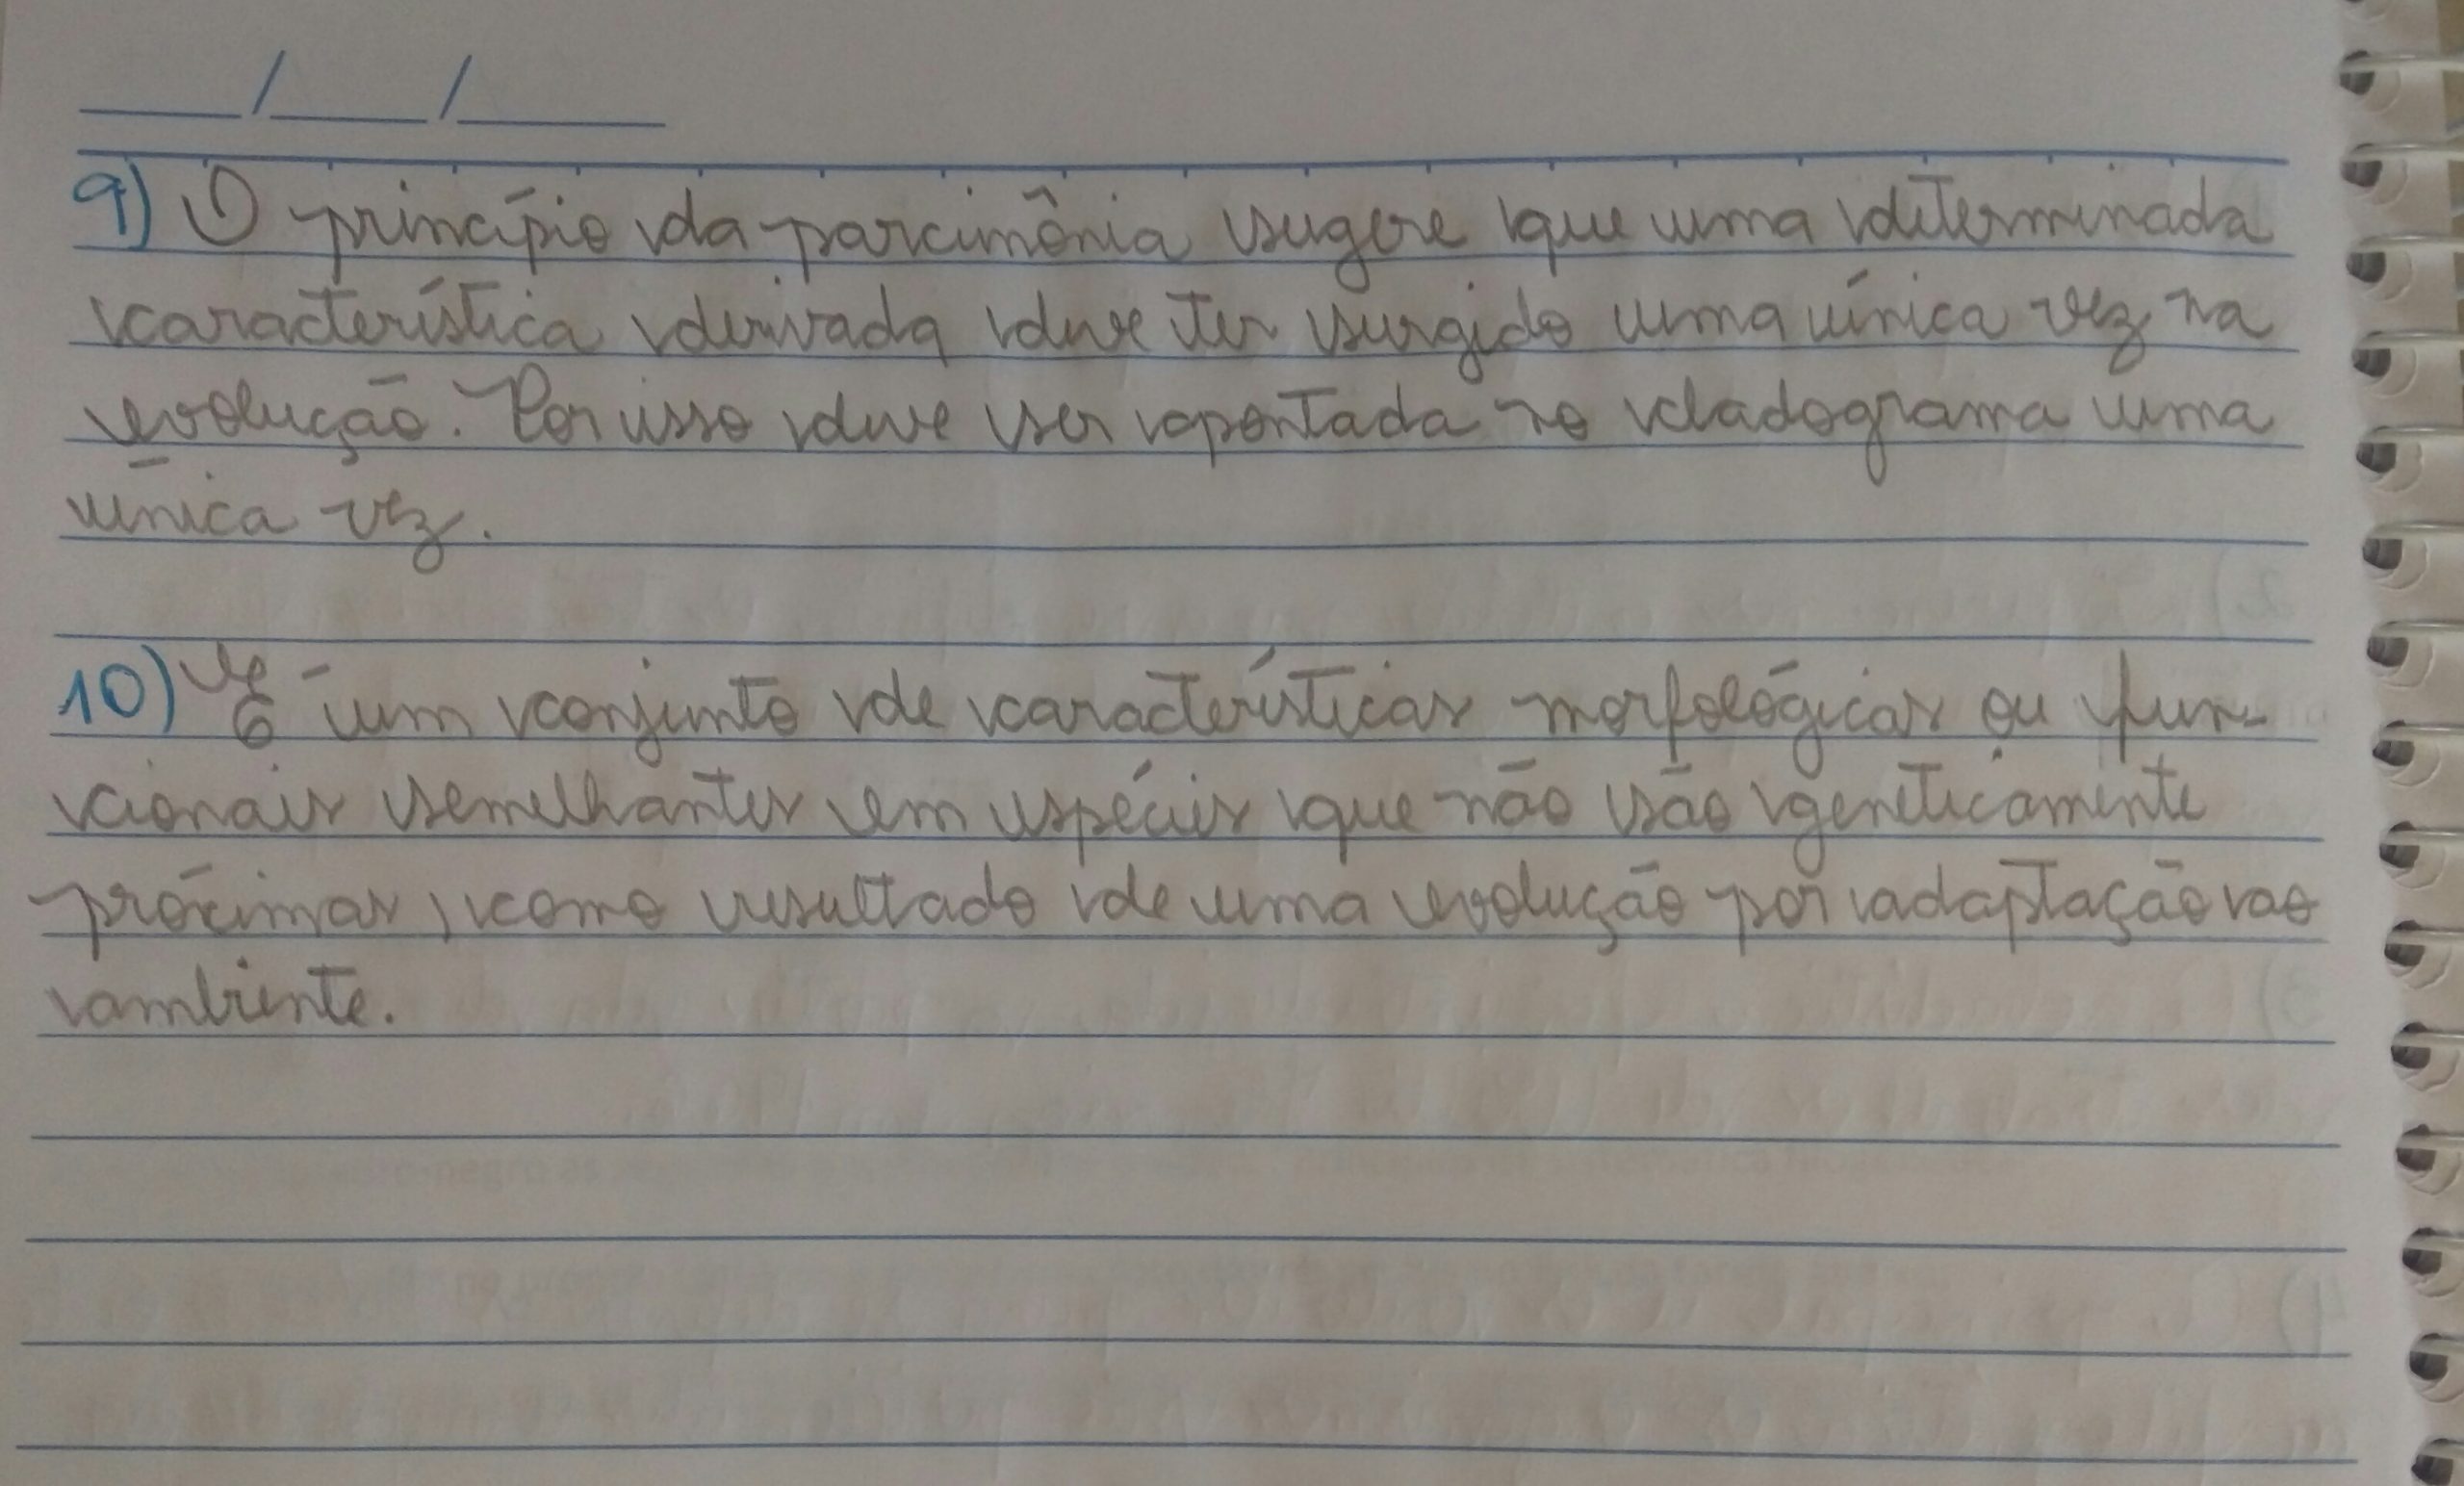 ___/___/___
9) O princípio da parcimônia sugere que uma determinada
característica derivada deve ter surgido uma única vez na
evolução. Por isso deve ser apontada no cladograma uma
única vez.
10) É um conjunto de características morfológicas ou fun-
cionais semelhantes em espécies que não são geneticamente
próximas, como resultado de uma evolução por adaptação ao
ambiente.